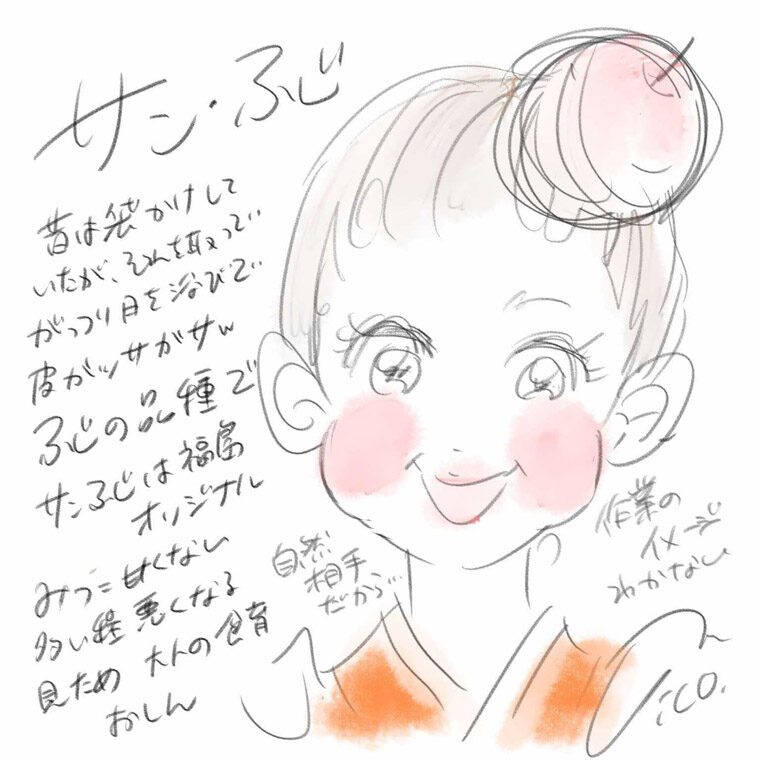 サン・ふじ
昔は袋かけして
いたが、それを取って
がっつり日を浴びて
皮がッサがサw
ふじの品種で
サンふじは福島
オリジナル
みつ＝甘くない
多い程悪くなる
見ため 大人の食育
おしん
自然
相手
だから…
作業の
イメージ
わかない